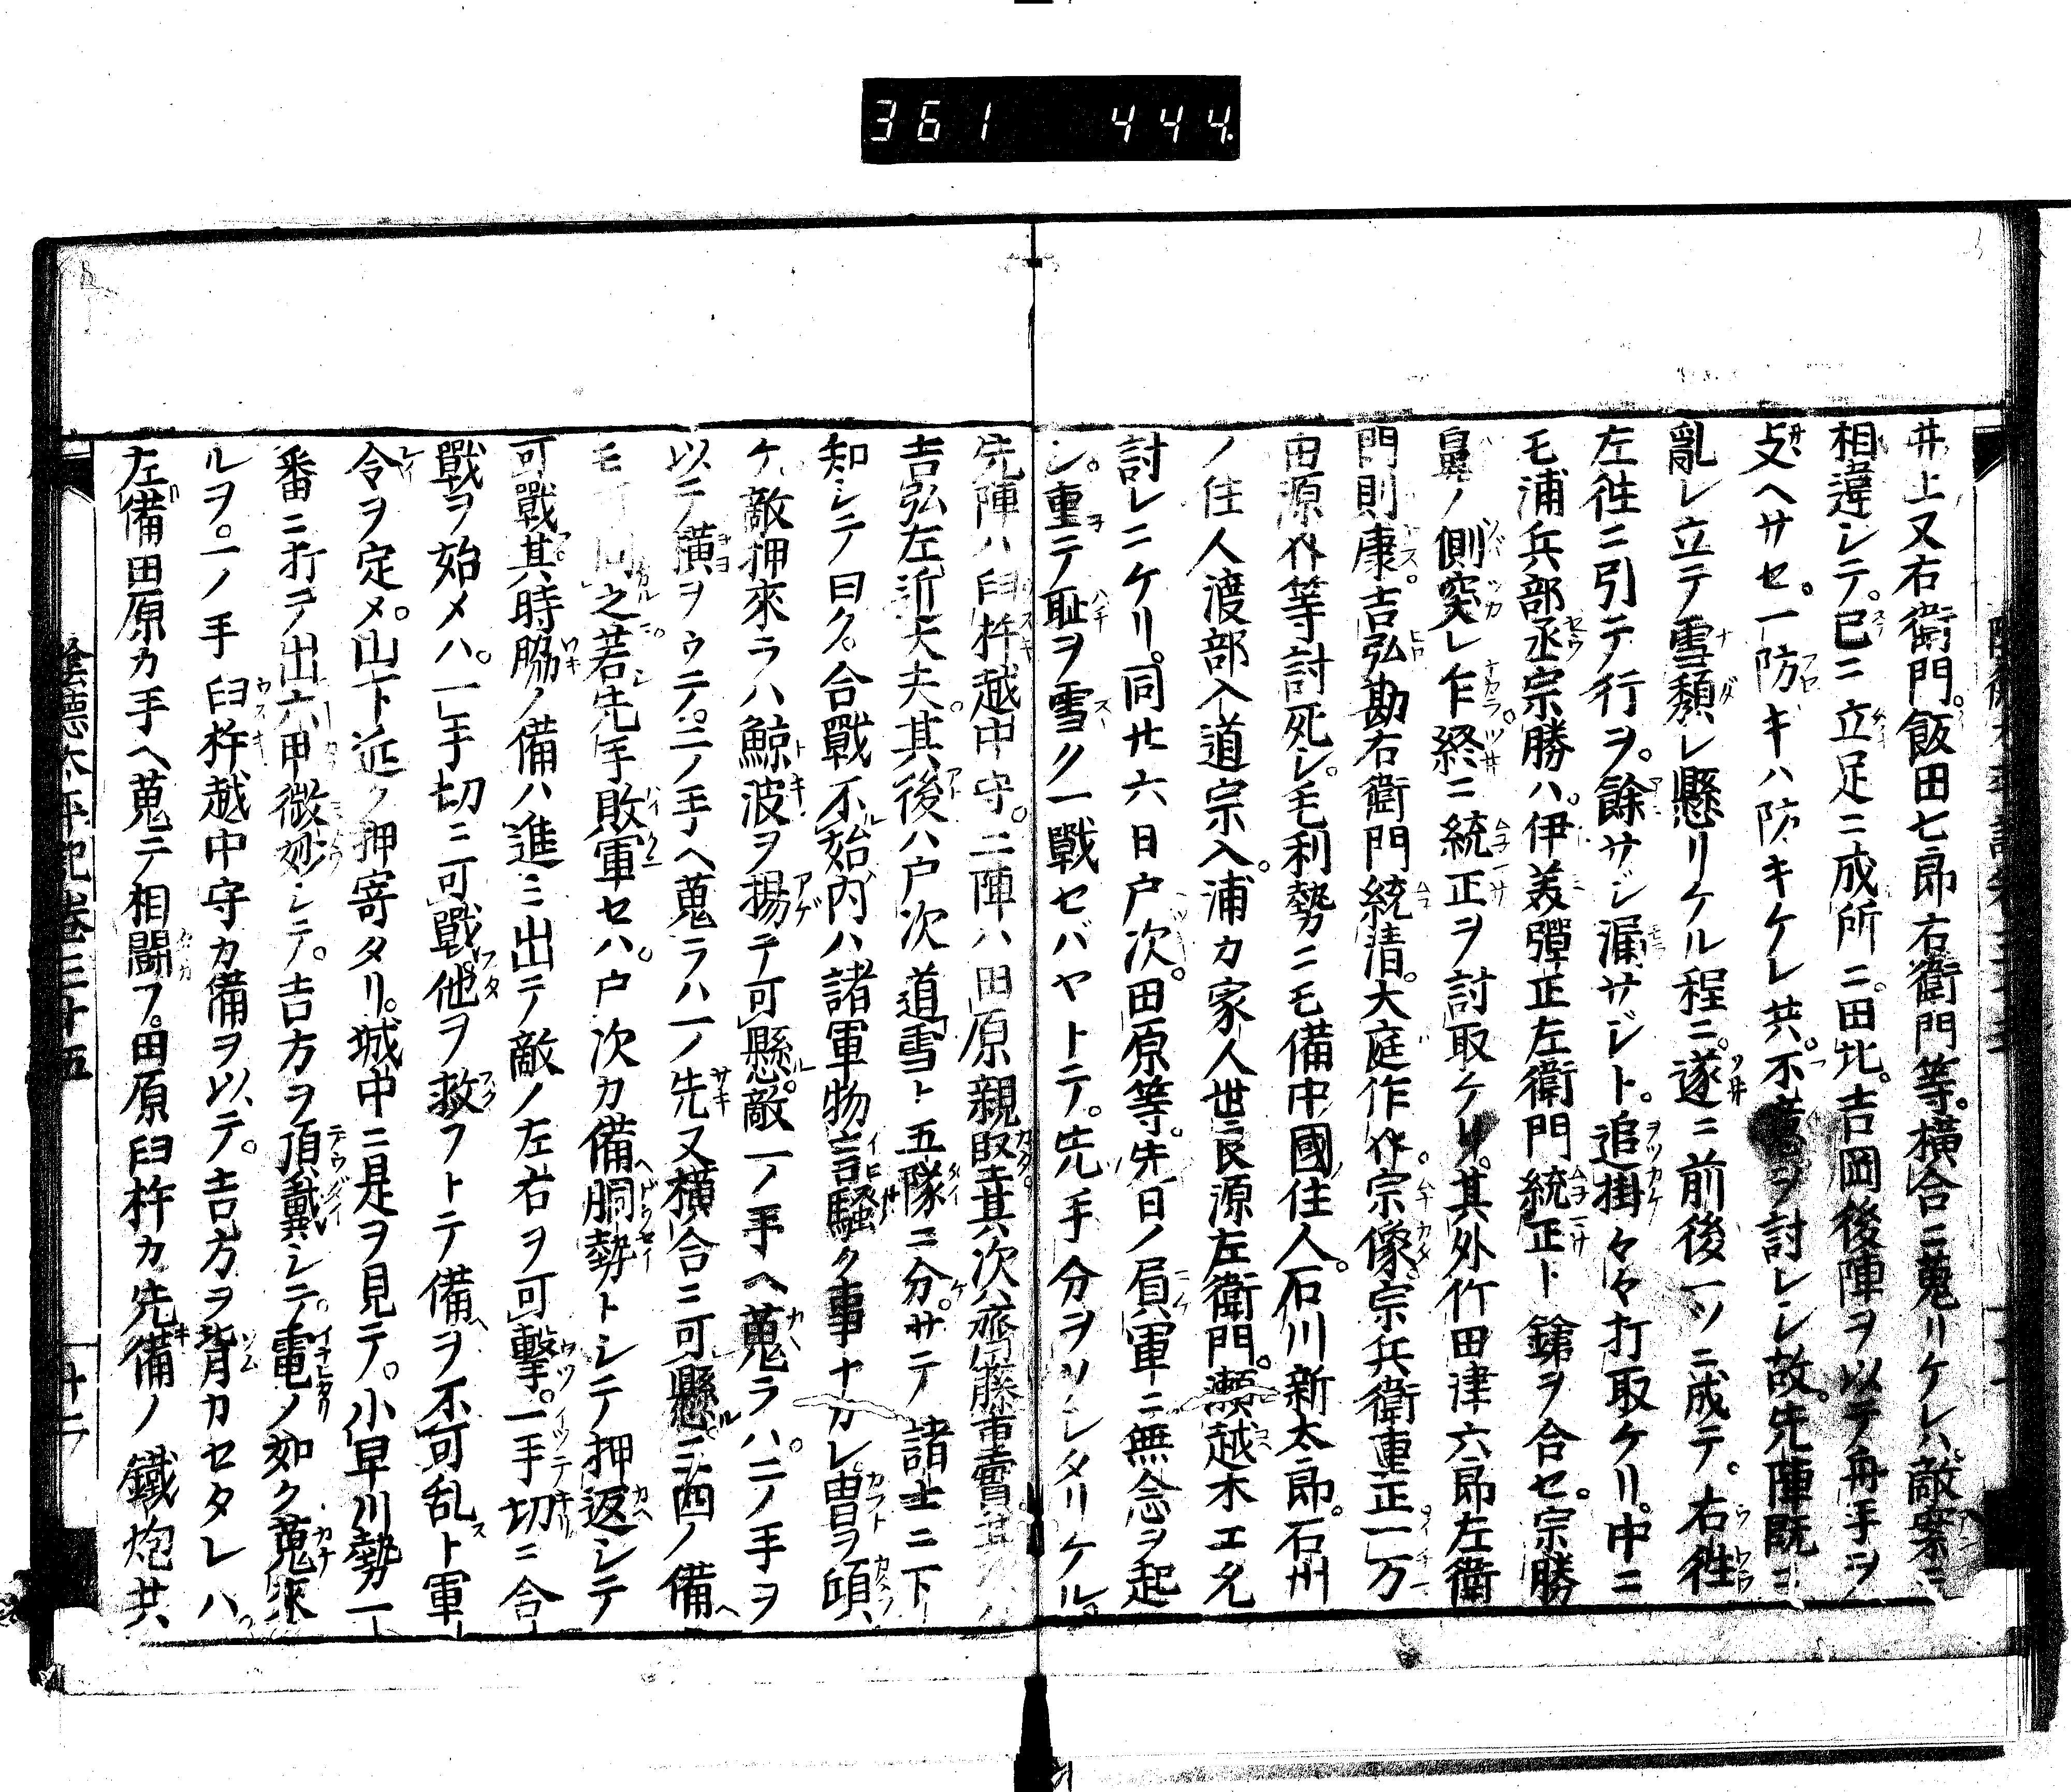 361 444
井上又右衛門。飯田七郎右衛門等。横合ニ蒐リケレハ。敵案ニ
相違シテ。已ニ立足ニ成所ニ。田北。吉岡後陣ヲ以テ舟手ヲ
支ヘサセ。一防ギハ防キケレ共。不ヲ討レシ故。先陣既ニ
亂レ立テ雪頽レ懸リケル程ニ。遂ニ前後一ツニ成テ。右徃
左徃ニ引テ行ヲ。餘サジ漏サジト。追掛々々打取ケリ。中ニ
モ浦兵部丞宗勝ハ。伊美彈正左衛門統正ト鎗ヲ合セ。宗勝
鼻ノ側突レ乍終ニ統正ヲ討取ケリ。其外竹田津六郎左衛
門則康。吉弘勘右衛門統清。大庭作介。宗像宗兵衛重正。一万
田源介等討死シ。毛利勢ニモ備中國住人。石川新太郎。石州
ノ住人渡部入道宗入。浦カ家人世良源左衛門。瀬越木工允
討レニケリ。同廿六日戸次。田原等。先日ノ負軍ニ無念ヲ起
シ。重テ恥ヲ雪ノ一戰セバヤトテ。先手分ヲソシタリケル。
先陣ハ臼杵越中守。二陣ハ田原親堅其次ハ齋藤
吉弘左近大夫。其後ハ戸次道雪ト五隊ニ分。サテ諸士ニ下
知シテノ曰ク。合戰不始内ハ諸軍物言騒ク事ナカレ。冑ヲ傾
ケ。敵押來ラハ鯨波ヲ揚テ可懸。敵一ノ手ヘ蒐ラハ。二ノ手ヲ
以テ横ヲウテ。二ノ手ヘ蒐ラハ一ノ先又横合ニ可懸。三四ノ備
モ可同之若先手敗軍セハ。戸次カ備胴勢トシテ押返シテ
可戰其時脇ノ備ハ進ミ出テ敵ノ左右ヲ可撃。一手切ニ合
戰ヲ始メハ。一手切ニ可戰他ヲ救フトテ備ヲ不可乱ト軍
令ヲ定メ。山下近ク押寄タリ。城中ニ是ヲ見テ。小早川勢一
番ニ打テ出六甲微妙シテ。吉方ヲ頂戴シテ。電ノ如ク蒐來
ルヲ。一ノ手臼杵越中守カ備ヲ以テ。吉方ヲ背カセタレハ。
左備田原カ手ヘ蒐テ相闘フ。田原臼杵カ先備ノ鐵炮共
陰德太平記卷三十五